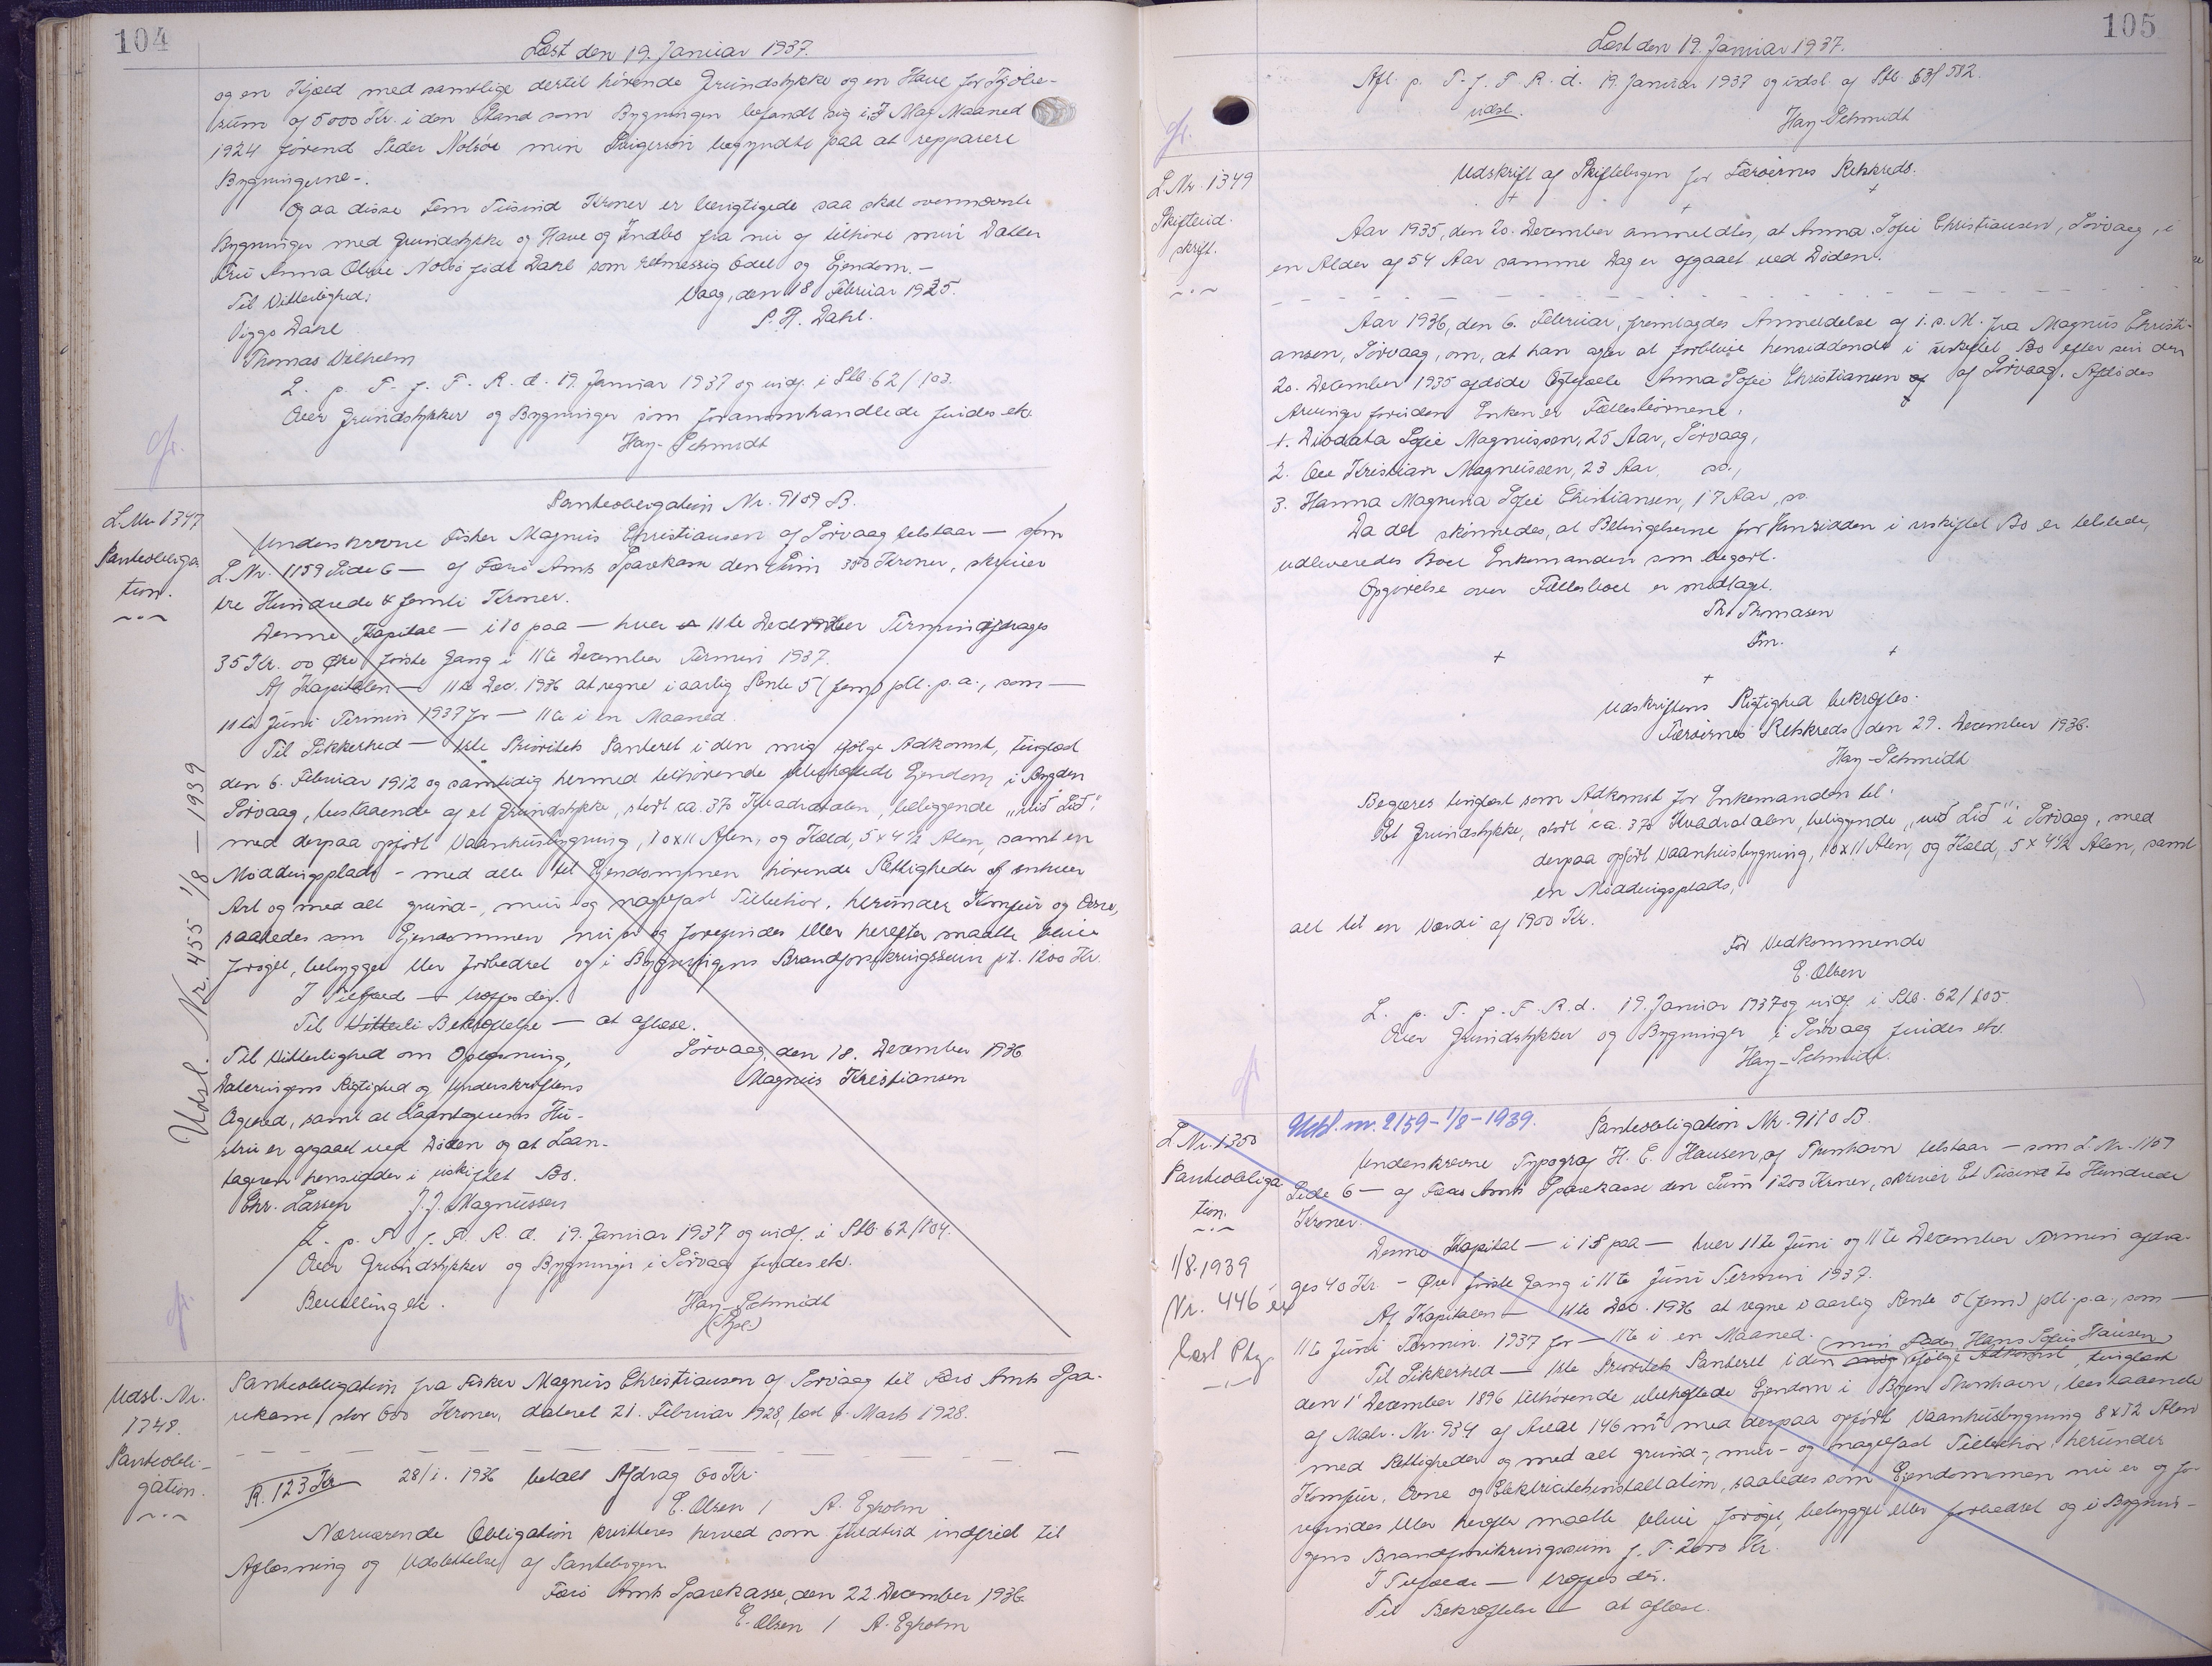 104
Læst den 19. Januar 1937.
og en Kjæld med samtlige dertil hörende Grundstykke og en Have for Kjöbe-
sum af 5000 Kr. i den Stand som Bygningen befandt sig i Maj Maaned
1924 forend Peder Nolsöe min Svigersön begyndte paa at repparere
Bygningerne-.
Og da disse Fem Tusind Kroner er berigtigede saa skal ovennævnte
Bygninger med Grundstykke og Have og Indbo fra nu af tilhöre min Datter
Fru Anna Olsöe Nolsö födt Dahl som retmessig Odel og Ejendom.-
Til Vitterlighed: Vaag, den 18 Februar 1925.
Viggo Dahl P. H. Dahl.
Thomas Vilhelm
L. p. T. f. F. R. d. 19. Januar 1937 og indf. i Slb. 62/103.
Over Grundstykker og Bygninger som foranomhandlede findes ek.
Hay-Schmidt
L. Nr. 1347
Panteobliga
tion.
Udsl. Nr. 455 1/8 - 1939
Panteobligation Nr. 9109 B.
Underskrevne Fisker Magnus Christiansen af Sörvaag tilstaar — som
L. Nr. 1159 Side 6 — af Færö Amts Sparekasse den Sum 350 Kroner, skriver
tre Hundrede & femti Kroner.
Denne Kapital — i 10 paa — hver 11te December Termin afdrages
35 Kr. 00 Øre förste Gang i 11te December Termin 1937.
Af Kapitalen — 11te Dec. 1936 at regne i aarlig Rente 5 (fem) pCt. p. a., som —
11te Juni Termin 1937 for — 11te i en Maaned.
Til Sikkerhed — 1ste Prioritets Panteret i den mig ifölge Adkomst, tinglæst
den 6. Februar 1912 og samtidig hermed tilhörende ubehæftede Ejendom i Bygden
Sörvaag, bestaaende af et Grundstykke, stort ca. 370 Kvadratalen, beliggende „við Lið"
med derpaa opfört Vaaanhusbygning, 10x11 Alen, og Kæld, 5x4½ Alen, samt en
Möddingsplads - med alle til Ejendommen hörende Rettigheder af enhver
Art og med alt grund-, mur og nagelfast Tilbehör, herunder Komfur og Ovne,
saaledes som Ejendommen nu er og forefindes eller herefter maatte blive
forøget, bebygget eller forbedret og i Bygningens Brandforsikringssum pt. 1200 Kr.
I Tilfælde — træffes der.
Til Vitterli Bekræftelse — at aflæse.
Til Vitterlighed om Oplæsning, Sörvaag, den 18. December 1936
Dateringens Rigtighed og Underskriftens Magnus Kristiansen
Ægthed, samt at Laantagerens Hu-
stru er afgaaet ved Döden og at Laan-
tageren hensidder i uskiftet Bo.
Chr. Lassen J. J. Magnussen
L. p. T. f. F. R. d. 19. Januar 1937 og indf. i Slb. 62/104.
Over Grundstykker og Bygninger i Sörvaag findes ek.
Bevilling ek. Hay-Schmidt
Udsl. Nr.
1348.
Panteobli-
gation.
Panteobligation fra Fisker Magnus Christiansen af Sörvaag til Færö Amts Spa-
rekasse, stor 600 Kroner, dateret 21. Februar 1928, læst Marts 1928.
R. 123 Kr 28/1. 1936 betalt Afdrag 60 Kr.
E. Olsen / A. Egholm
Nærværende Obligation kvitteres herved som fuldtud indfriet til
Aflæsning og Udslettelse af Pantebogen.
Færö Amts Sparekasse, den 22. December 1936
E. Olsen / A. Egholm
105
Læst den 19. Januar 1937.
Afl. p. T. f. F. R. d. 19. Januar 1937 og udsl. af Slb. 53/582.
udsl. Hay-Schmidt
L. Nr. 1349
Skifteud-
skrift.
Udskrift af Skiftebogen for Færöernes Retskreds.
Aar 1935, den 20. December anmeldtes, at Anna Sofie Christiansen, Sörvaag, i
en Alder af 54 Aar samme Dag er afgaaet ved Döden.
Aar 1936, den 6. Februar, fremlagdes Anmeldelse af i. s. M. fra Magnus Christi-
ansen, Sörvaag, om, at han agter at forblive hensiddende i uskiftet Bo efter sin den
20. December 1935 afdöde Ægtefælle Anna Sofie Christiansen af Sörvaag. Afdödes
Arvinger foruden Enken er Fællesbörnene:
1. Diodata Sofie Magnussen, 25 Aar, Sörvaag,
2. Ove Kristian Magnussen, 23 Aar, so.,
3. Hanna Magnina Sofie Christiansen, 17 Aar, so.
Da det skönnedes, at Betingelserne for Hensidden i uskiftet Bo er tilstede,
udleveredes Boet Enkemanden som begært.
Opgörelse over Fællesboet er modtaget.
Th. Thomasen
Fm.
Udskriftens Rigtighed bekræftes.
Færöernes Retskreds, den 29. December 1936.
Hay-Schmidt
Begæres tinglæst som Adkomst for Enkemanden til:
Et Grundstykke, stort ca. 370 Kvadratalen, beliggende „við Lið" i Sörvaag, med
derpaa opfört Vaanhusbygning, 10x11 Alen, og Kæld, 5x4½ Alen, samt
en Möddingsplads,
alt til en Værdi af 1900 Kr.
For Vedkommende
E. Olsen
L. p. T. f. F. R. d. 19. Januar 1937 og indf. i Slb. 62/105.
Over Grundstykker og Bygninger i Sörvaag findes ek.
Hay-Schmidt.
L. Nr. 1350
Panteobliga
tion.
1/8.1939
Nr. 446 er
læst
Udsl. nr. 2159 - 1/8 - 1939. Panteobligation Nr. 9110 B.
Underskrevne Typograf H. E. Hansen af Thorshavn tilstaar — som L. Nr. 1159
Side 6 — af Færö Amts Sparekasse den Sum 1200 Kroner, skriver Et Tusind to Hundrede
Kroner.
Denne Kapital — i 15 paa — hver 11te Juni og 11te December Termin afdra-
ges 40 Kr. - Øre förste Gang i 11te Juni Termin 1937.
Af Kapitalen — 11te Dec. 1936 at regne i aarlig Rente 5 (fem) pCt. p. a., som —
11te Juni Termin 1937 for — 11te i en Maaned.
Til Sikkerhed — 1ste Prioritets Panteret i den mig min Fader Hans Sofus Hansen ifölge Adkomst, tinglæst
den 1 December 1896 tilhörende ubehæftede Ejendom i Byen Thorshavn, bestaaende
af Matr. Nr. 934 af Areal 146 m² med derpaa opfört Vaanhusbygning 8x12 Alen
med Rettigheder og med alt grund-, mur- og nagelfast Tilbehör, herunder
Komfur, Ovne og Elektricitetsinstallation, saaledes som Ejendommen nu er og fo-
refindes eller herefter maatte blive foröget, bebygget eller forbedret og i Bygnin-
gens Brandforsikringssum p. T. 2000 Kr.
I Tilfælde — træffes der.
Til Bekræftelse — at aflæse.